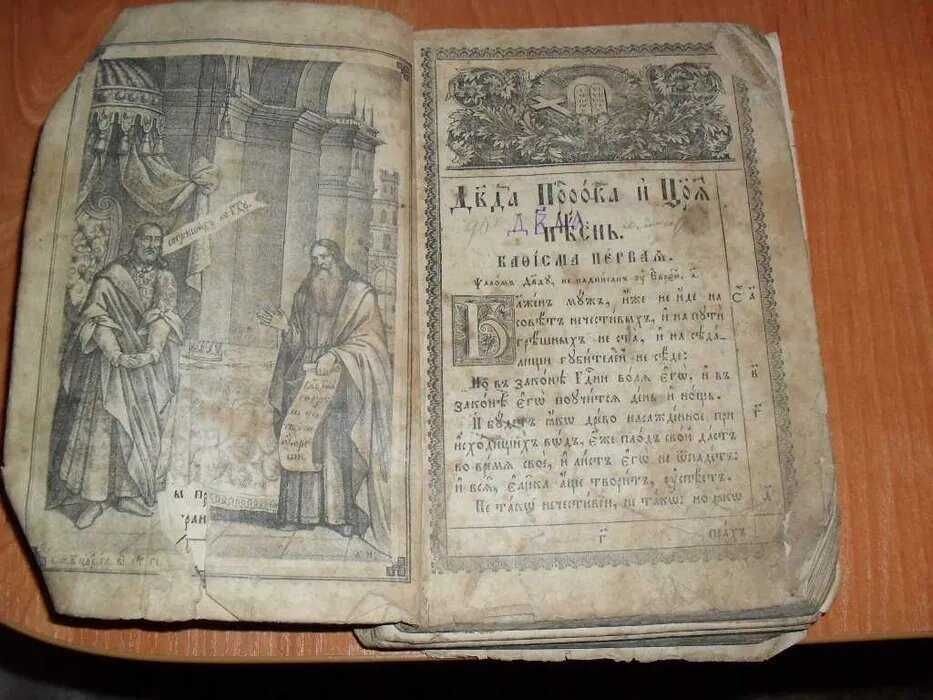 согрѣшихъ ко гдⷭ҇у
Дв҃да Прⷪ҇ро́ка и҆ Цр҃ѧ̀
пѣснь.
каѳі́сма пе́рваѧ.
Ѱало́мъ Дв҃ду, не надпи́санъ ᲂу҆ Є҆вре́й, а҃
Бл҃же́нъ мꙋ́жъ, и҆́же не и҆́де на
совѣ́тъ нечести́выхъ, и҆ на пꙋтѝ
грѣ́шныхъ не ста̀, и҆ на сѣда́-
лищи гꙋби́телей не сѣ́де:
Но въ зако́нѣ гдⷭ҇ни во́лѧ є҆гѡ̀, и҆ въ
зако́нѣ є҆гѡ̀ поꙋчи́тсѧ де́нь и҆ но́щь.
И҆ бꙋ́детъ ꙗ҆́кѡ дре́во насажде́нное при
и҆схо́дищихъ во́дъ, є҆́же пло́дъ сво́й да́стъ
во вре́мѧ своѐ, и҆ ли́стъ є҆гѡ̀ не ѿпаде́тъ:
и҆ всѧ̑, є҆ли̑ка а҆́ще твори́тъ, ᲂу҆спѣ́етъ.
Не та́кѡ нечести́вїи, не та́кѡ: но ꙗ҆́кѡ
г҃
пра́хъ